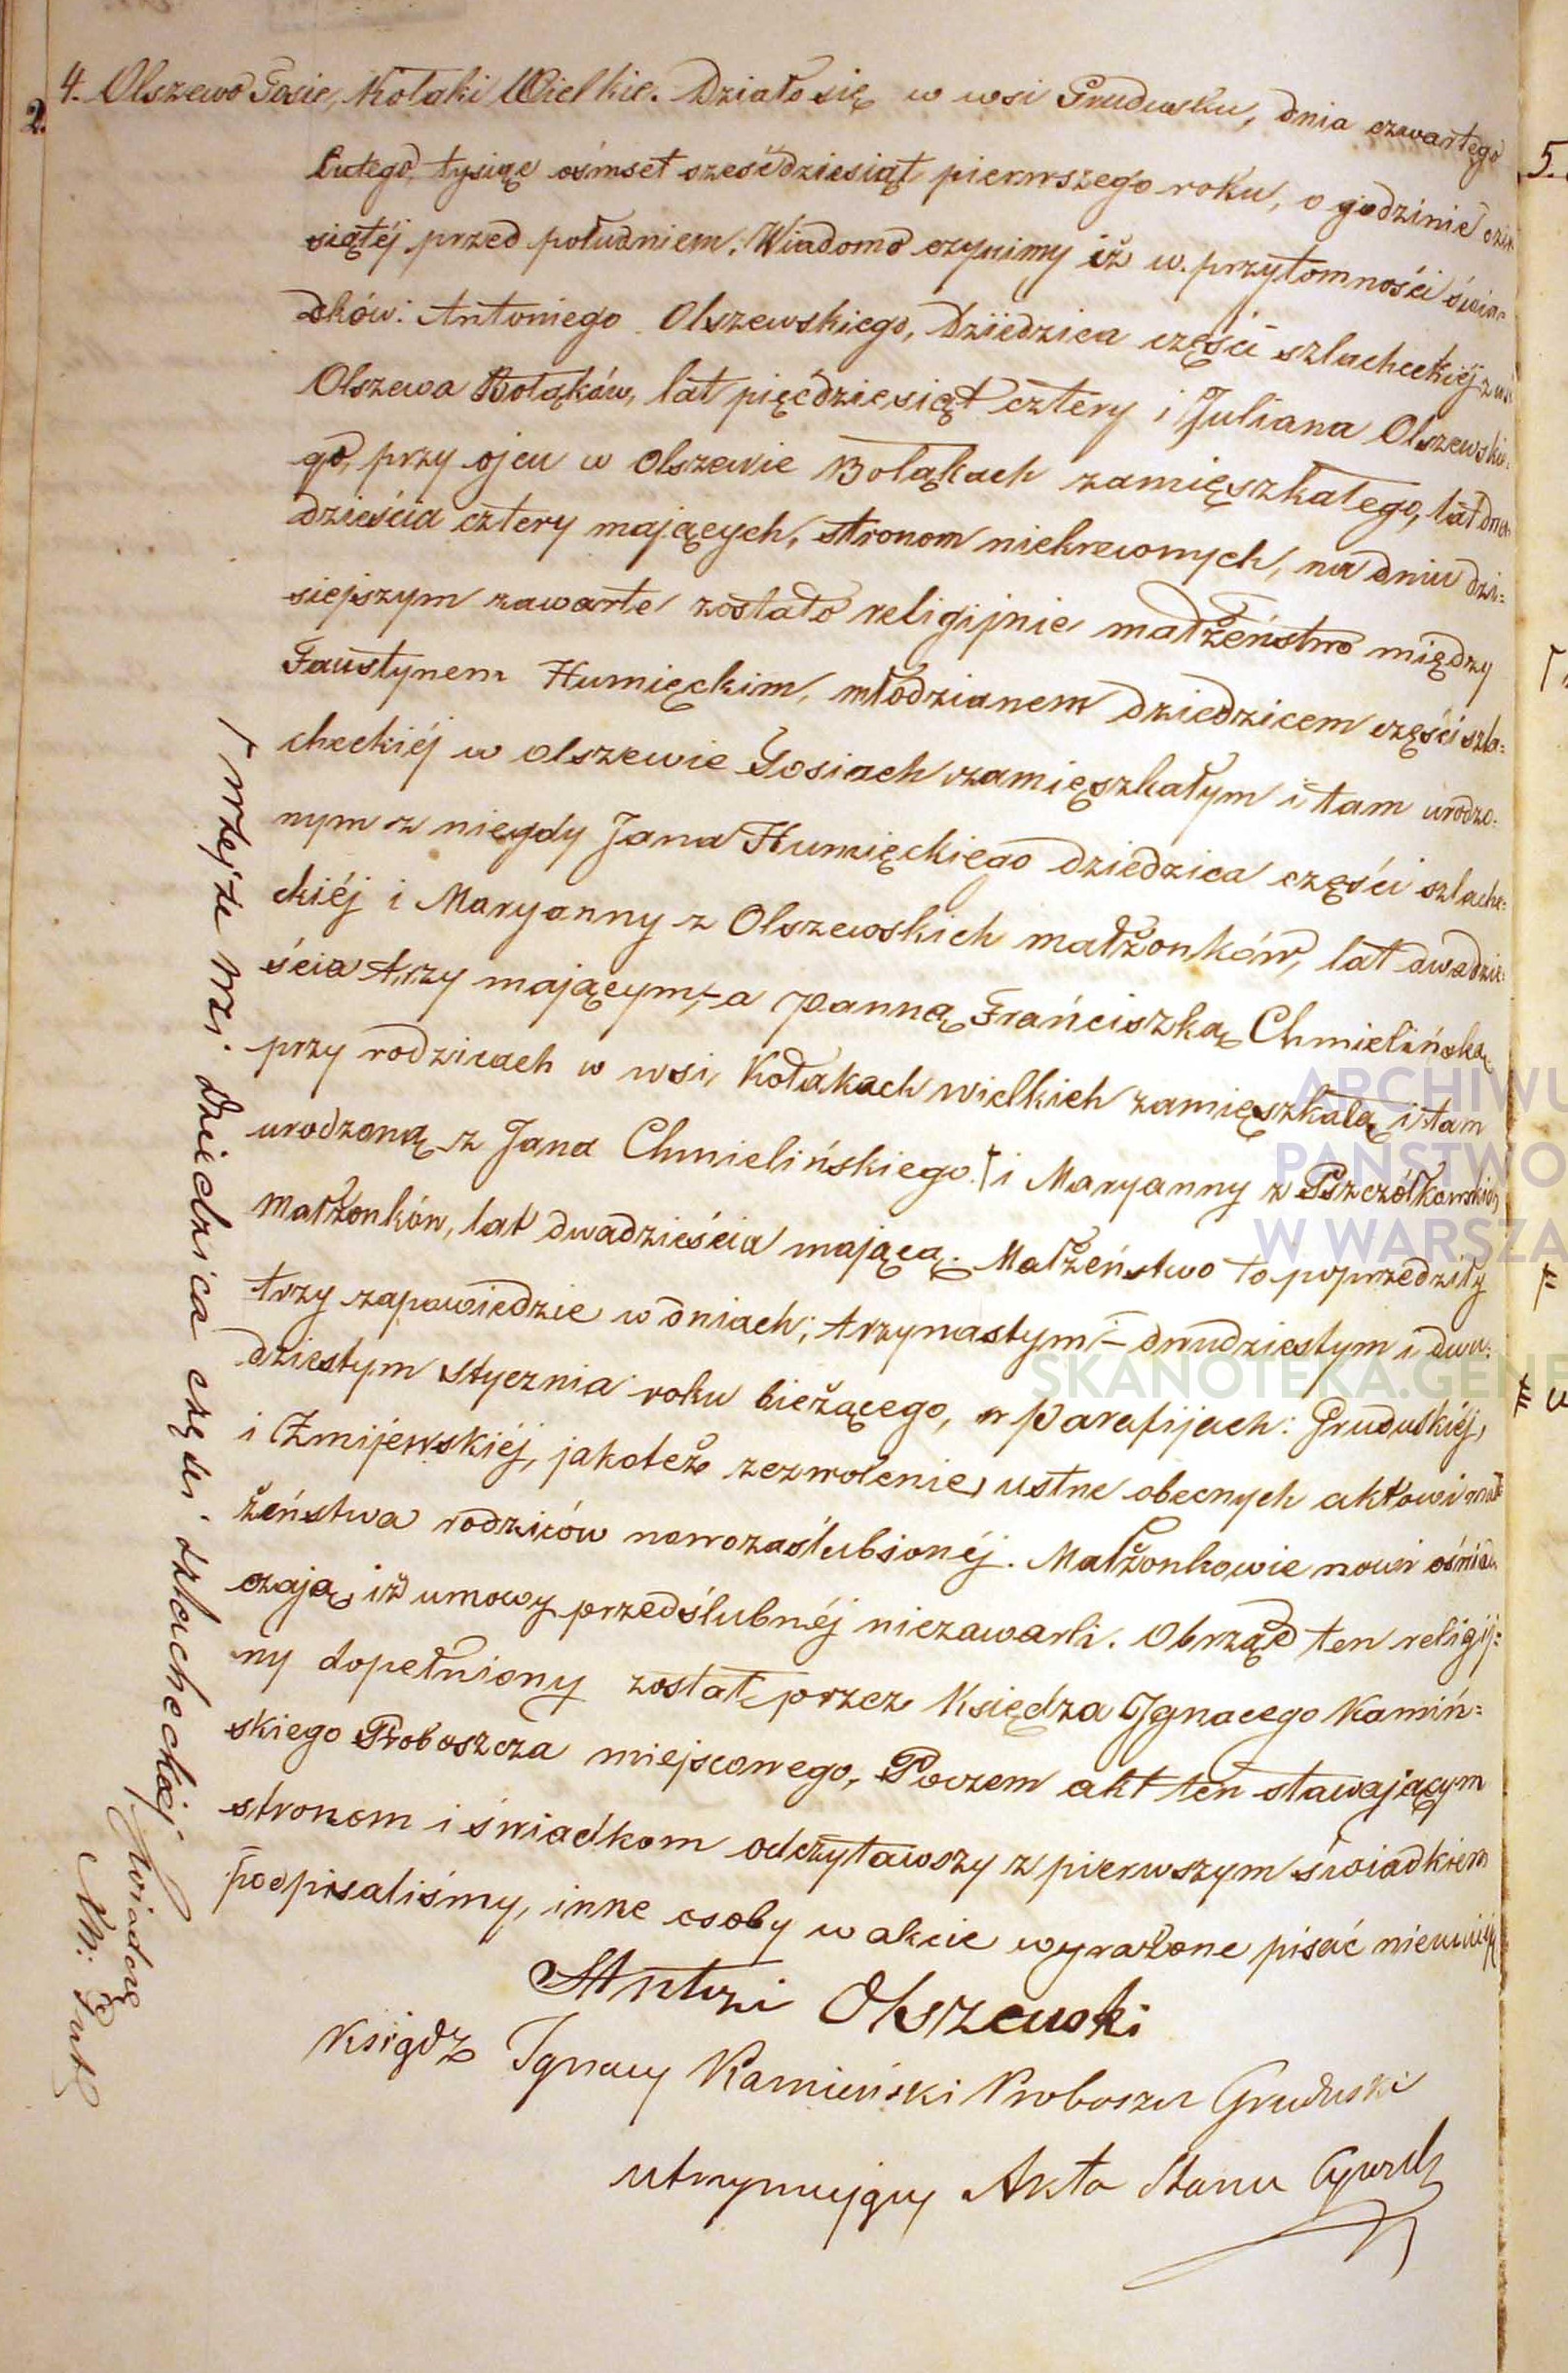 4. Olszewo Gosie, Kołaki Wielkie. Działo się w wsi Grudusku, dnia czwartego
2.
lutego, tysiąc ośmset sześćdziesiąt pierwszego roku, o godzinie
siątéj przed południem. Wiadomo czynimy iż w przytomności świa=
dków: Antoniego Olszewskiego, Dziedzica części szlacheckiéj z wsi
Olszewa Bołąków, lat pięćdziesiąt cztery i Juliana Olszewskie=
go, przy ojcu w Olszewie Bołąkach zamięszkałego, lat dwa
dzieścia cztery mających, stronom niekrewnych, na dniu dzi=
siejszym zawarte zostało religijnie małżeństwo między
Faustynem Humięckim, młodzianem dziedzicem części szla=
checkiéj w Olszewie Gosiach zamięszkałym i tam urodzo=
nym z niegdy Jana Humięckiego dziedzica części szlache=
ckiéj i Maryanny z Olszewskich małżonków, lat dwadzie=
ścia trzy mającym,- a panną Franciszką Chmielińską
przy rodzicach w wsi Kołakach wielkich zamięszkałą i tam
urodzoną z Jana Chmielińskiego ⌈ i Maryanny z Pszczółkowskich
Małżonków, lat dwadzieścia mającą. Małżeństwo to poprzedziły
trzy zapowiedzie w dniach; trzynastym - dwudziestym i dwu=
dziestym stycznia roku bieżącego, w Parafijach: Gruduskiéj,
i Żmijewskiéj, jakoteż zezwolenie ustne obecnych aktowi mał
żeństwa rodziców nowozaślubionéj. Małżonkowie nowi oświad
czają, iż umowy przedślubnéj niezawarli. Obrząd ten religij=
ny dopełniony został przez Księdza Ignacego Kamiń=
skiego Proboszcza miejscowego, Poczem akt ten stawającym
stronom i świadkom odczytawszy z pierwszym świadkiem
podpisaliśmy, inne osoby w akcie wyrażone pisać nieumieją
Antoni Olszewski
Ksiądz Ignacy Kamieński Proboszcz Gruduski
utrzymujący Akta Stanu Cywil
⌈ w tejże wsi dziedzica części szlacheckiéj
5.
ARCHIWU
PAŃSTWO
W WARSZA
SKANOTEKA.GENE